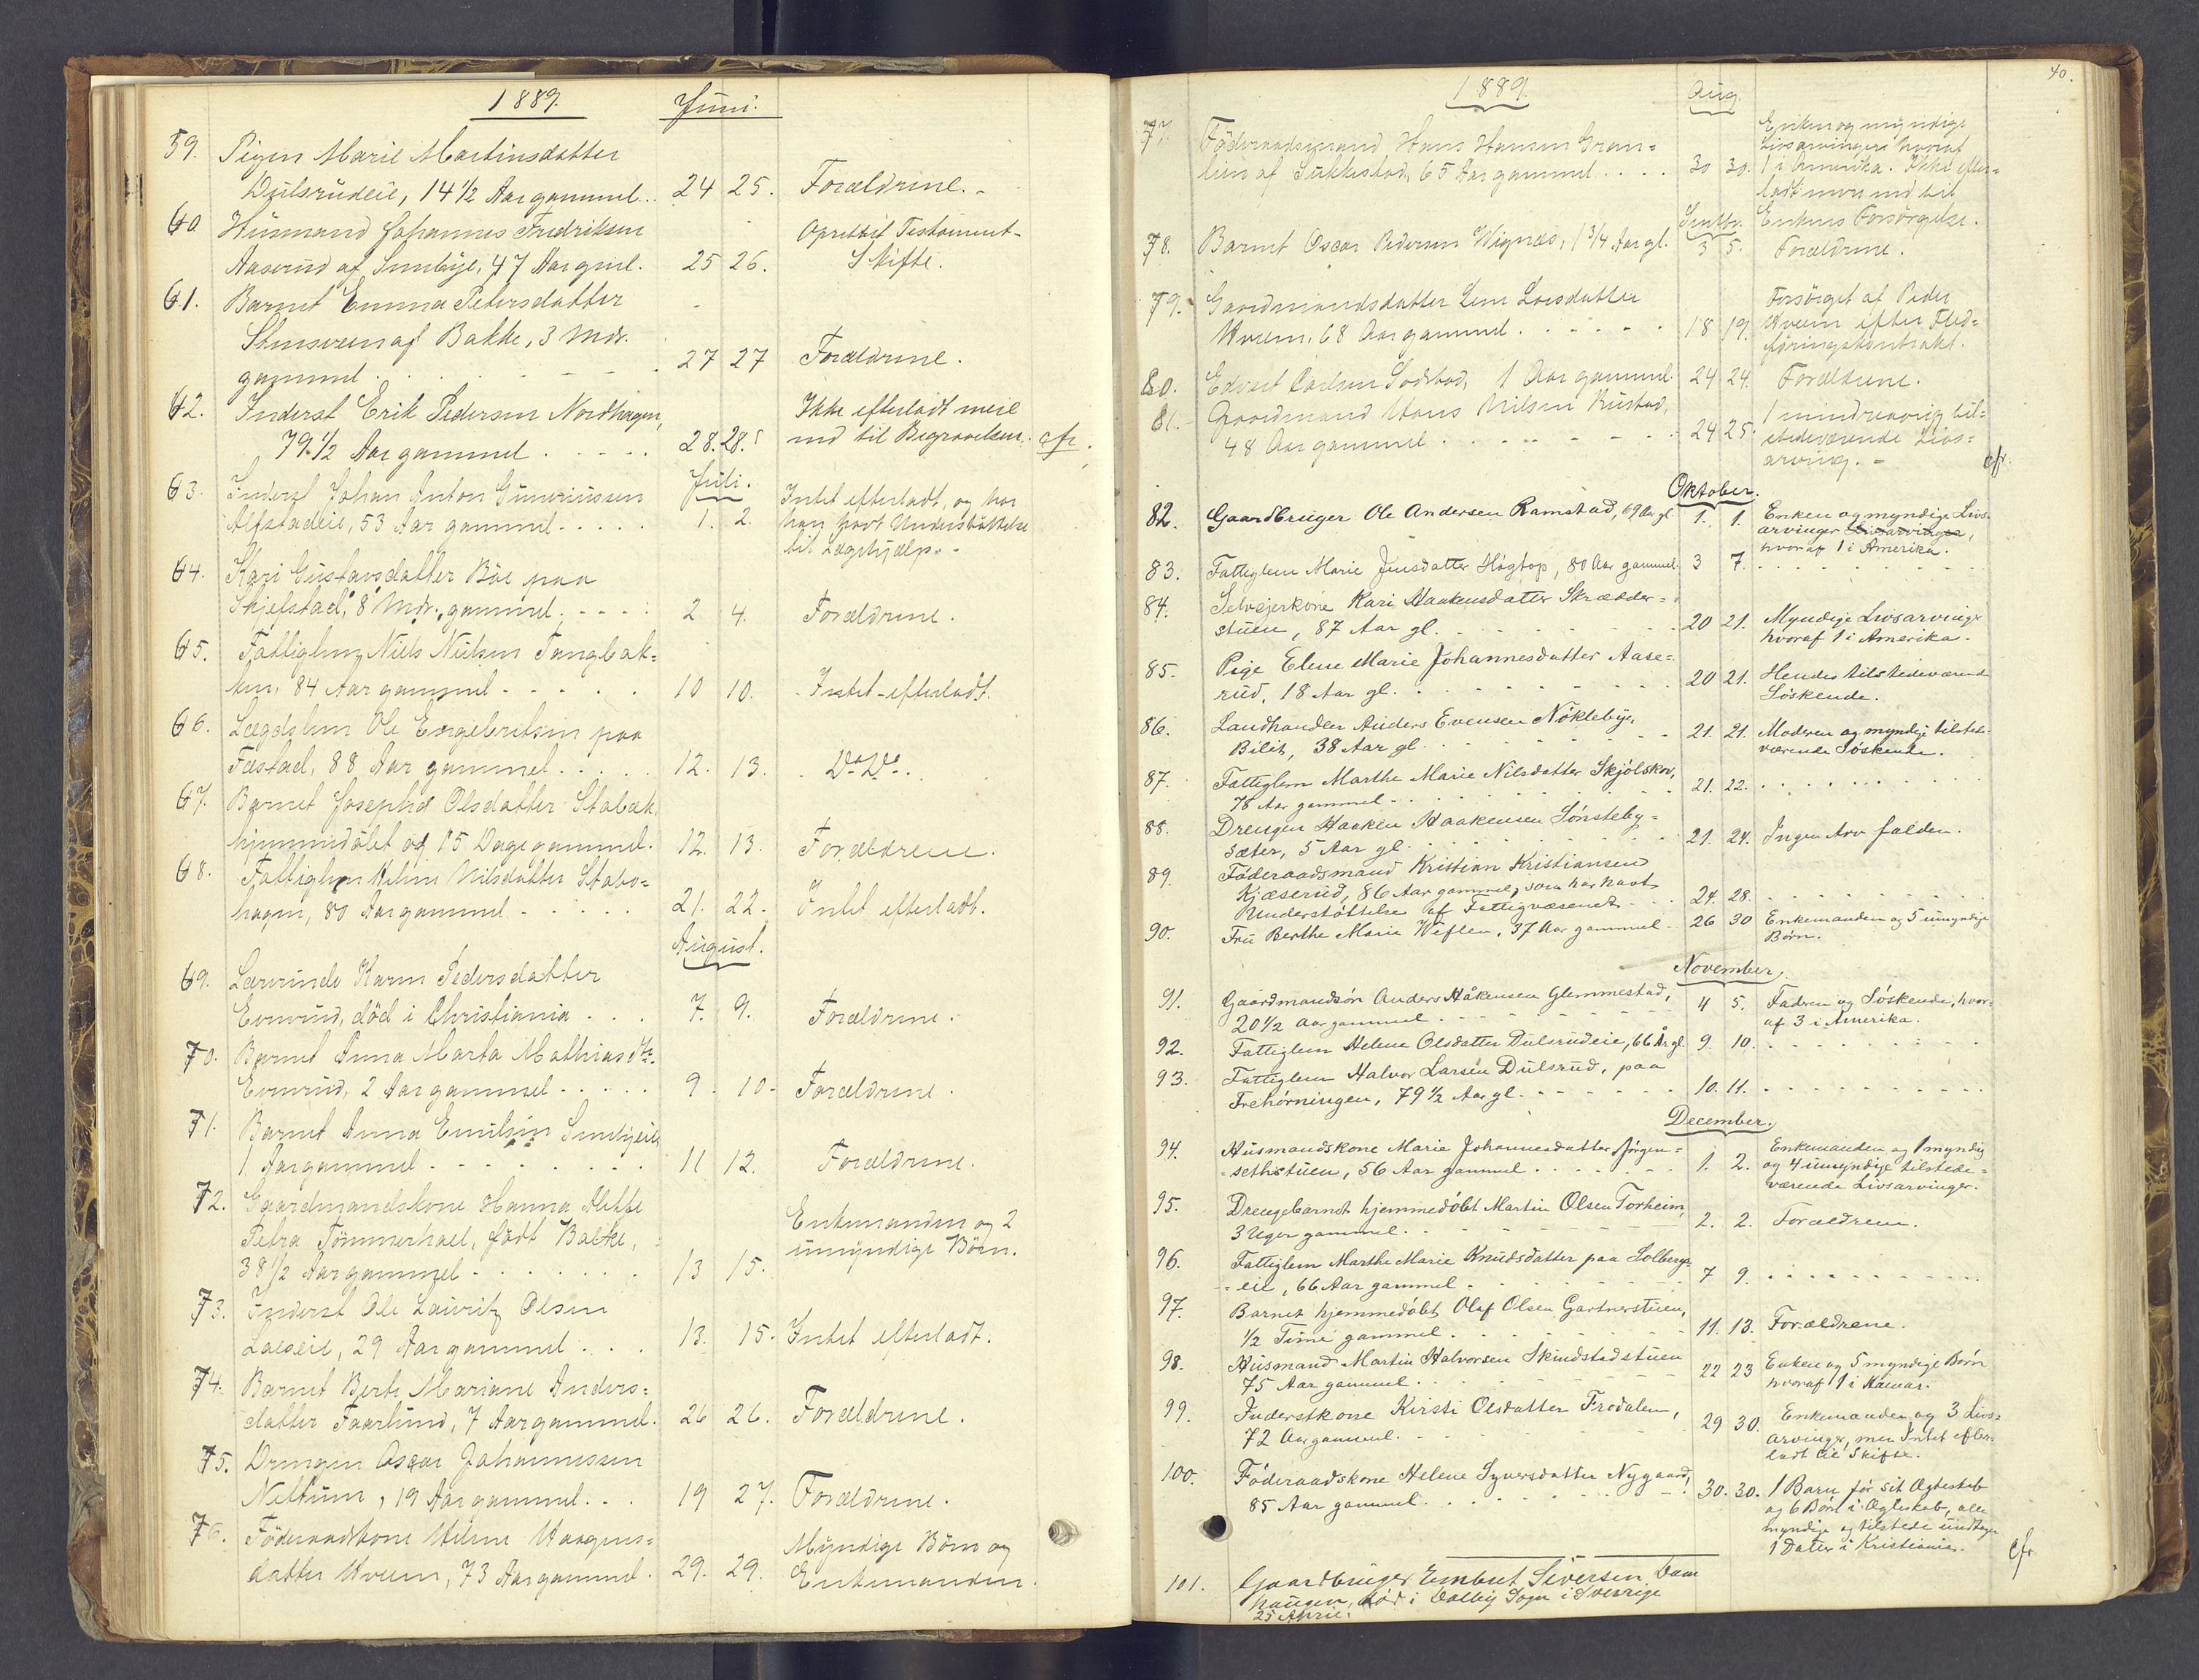 1889.
Juni.
59. Pigen Marie Martinsdatter
Dulsrudeie, 14 1/2 Aar gammel.. 24 25. Forældrene. -
60. Husmand Johannes Fredriksen Oprettet Testament-
Aaserud af Sembye, 47 Aar gml. 25 26. Skifte.
61. Barnet Emma Petersdatter
af Bakke, 3 Mdr.
gammel. 27 27 Forældrene.
62. Inderst Erik Pedersen Nordhagen, Ikke efterladt mere
79 1/2 Aar gammel 28. 28. end til Begravelsen. cfr.
Juli.
63. Inderst Johan Anton Guneriussen Intet efterladt, og har
Alfstadeie, 53 Aar gammel 1. 2. han havt Understøttelse
til Lægehjælp. -
64. Kari Gustavsdatter Böe paa
Skjefstad, 8 Mdr. gammel. 2 4. Forældrene.
65. Fattiglem Niels Nielsen Tangbak=
ken, 84 Aar gammel 10 10. Intet efterladt.
66. Lægdslem Ole Engebretsen paa
Fæstad, 88 Aar gammel 12. 13. Do Do.
67. Barnet Josepha Olsdatter Stabæk,
hjemmedöbt og 15 Dage gammel. 12. 13. Forældrene.
68. Fattiglem Helene Nilsdatter Stabo=
hagen, 80 Aar gammel 21. 22. Intet efterladt.
August.
69. Lærerinde Karen Pedersdatter
Evenrud, död i Christiania . . . 7. 9. Forældrene.
70. Barnet Anna Marta Mathiasdtr.
Evenrud, 2 Aar gammel 9. 10. Forældrene.
71. Barnet Anna Emilsen
1. Aar gammel 11 12. Forældrene.
72. Gaardmandskone Hanna Mette
Petra Tömmerhoel, födt Balke, Enkemanden og 2
38 1/2 Aar gammel 13 15. umyndige Börn.
73. Inderst Ole Lauritz Olsen
29 Aar gammel . . . 13. 15. Intet efterladt.
74. Barnet Berte Mariane Anders=
datter Faarlund, 7 Aar gammel. 26 26. Forældrene.
75. Drengen Oscar Johannessen
Neltun, 19 Aar gammel. . . 19 27. Forældrene.
76. Föderaadskone Helene Haagens= Myndige Börn og
datter Hveem, 73 Aar gammel. 29. 29. Enkemanden.
40.
1889.
Aug.
77. Föderaadsmand Hans Hansen Gran= Enken og myndige Livsarvinger hvoraf
lien af Sukkestad, 65 Aar gammel 30 30. 1 i Amerika. Ikke efter=
ladt mere end til
Septbr. Enkens Forsörgelse.
78. Barnet Oscar Pedersen Vignæs, 1 3/4 Aar gl. 3 5. Forældrene.
79. Gaardmandsdatter Lene Larsdatter Forsörget af Peder
Hveem, 68 Aar gammel 18 19. Hveem efter Fled=
föringskontrakt.
80. Edvart Carlsen Sodstad, 1 Aar gammel 24 24. Forældrene.
81. Gaardmand Hans Nilsen Rustad, 1 mindreaarig til=
48 Aar gammel 24 25. stedeværende Livs=
arving. - cfr.
Oktober.
82. Gaardbruger Ole Andersen Ramstad, 69 Aar gl. 1. 1. Enken og myndige Livs-
arvinger Livsarvinger,
hvoraf 1 i Amerika.
83. Fattiglem Marie Jensdatter Högtop, 80 Aar gammel 3 7.
84. Selveierkone Kari Haakensdatter Skrædder=
stuen, 87 Aar gl. 20 21. Myndige Livsarvinger
hvoraf 1 i Amerika.
85. Pige Elene Marie Johannesdatter Aase=
rud, 18 Aar gl. 20 21. Hendes tilstedeværende
Söskende.
86. Landhandler Anders Evensen Nöklebye,
Bilit, 38 Aar gl. 21. 21. Moderen og myndige tilstede-
værende Söskende.
87. Fattiglem Marthe Marie Nilsdatter Skjölskov,
78 Aar gammel 21. 22.
88. Drengen Haaken Haakensen Sönsteby=
sæter, 5 Aar gl. 21. 24. Ingen Arv falden.
89. Föderaadsmand Kristian Kristiansen
Kjæserud, 86 Aar gammel, som har havt
Understöttelse af Fattigvæsenet. 24. 28.
90. Fru Berthe Marie Weflen, 37 Aar gammel 26 30 Enkemanden og 5 umyndige
Börn.
November.
91. Gaardmandsön Anders Håkensen Glemmestad, 4 5. Faderen og Söskende, hvor=
20 1/2 Aar gammel af 3 i Amerika.
92. Fattiglem Helene Olsdatter Dulsrudeie, 66 År gl. 9. 10.
93. Fattiglem Halvor Larsen Dulsrud, paa
Trehörningen, 79 1/2 Aar gl. 10. 11.
December.
94. Husmandskone Marie Johannesdatter Jörgen= Enkemanden og 1 myndig
=sethstuen, 56 Aar gammel 1. 2. og 4 umyndige tilstede=
værende Livsarvinger.
95. Drengebarnet hjemmedöbt Martin Olsen Torheim,
3 Uger gammel. 2. 2. Forældrene.
96. Fattiglem Marthe Marie Knudsdatter paa Solberg=
=eie, 66 Aar gammel 7 9.
97. Barnet hjemmedöbt Olaf Olsen Gartnerstuen,
1/2 Time gammel. 11. 13. Forældrene.
98. Husmand Martin Halvorsen Skindstadstuen
75 Aar gammel. 22 23 Enken og 5 myndige Börn
hvoraf 1 i Hamar.
99. Inderstkone Kirsti Olsdatter Frodalen, Enkemanden og 3 Livs=
72 Aar gammel. 29 30. arvinger, men Intet efter=
ladt til Skifte.
100. Föderaadskone Helene Syversdatter Nygaard, 1 Barn för sit Ægteskab
85 Aar gammel. 30. 30. og 6 Börn i Ægteskab, alle
myndige og tilstede undtagen
1 Datter i Kristiania. cfr
101. Gaardbruger Embret Siversen Dam
haugen, död i Dalby Sogn i Sverrige
25 April.